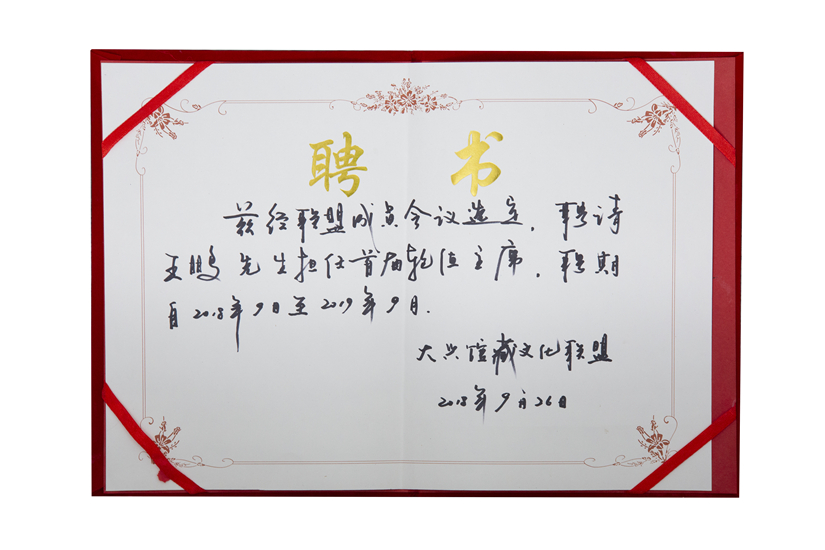 聘书
兹经联盟成员会议选定，聘请
王鹏先生担任首届轮值主席，聘期
自2018年9月至2019年9月.
大兴馆藏文化联盟
2018年9月26日